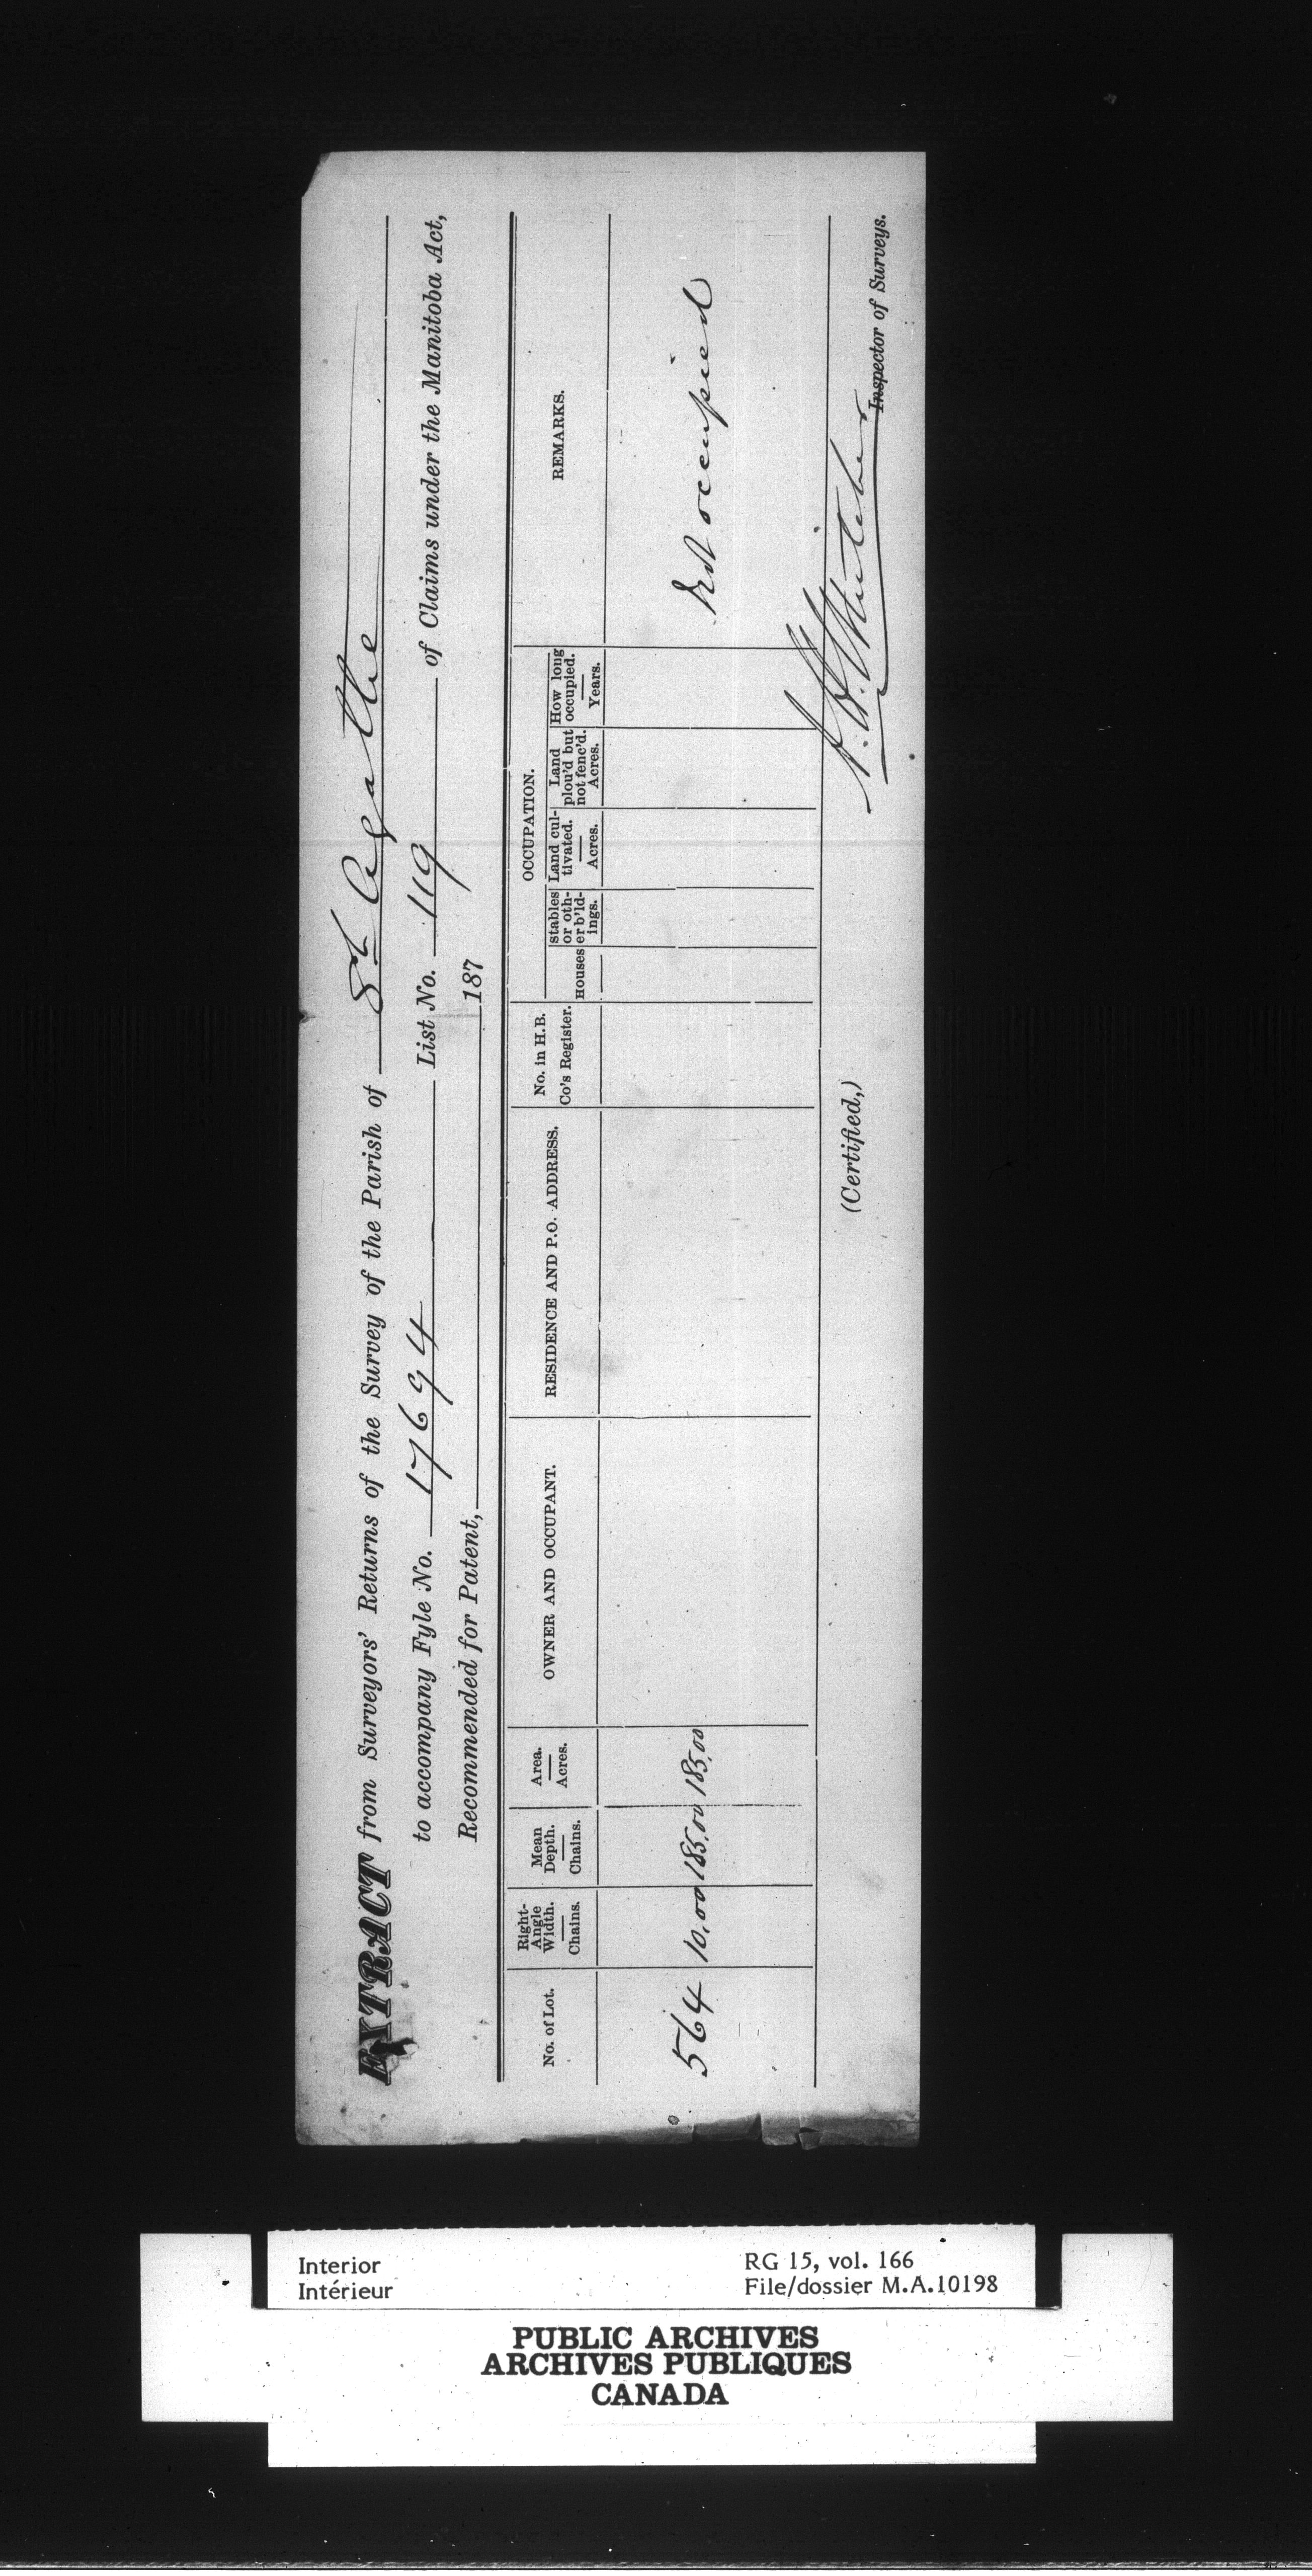 EXTRACT from Surveyors' Returns of the Survey of the Parish of St Agathe
to accompany Fyle No. 17694 List No. 119 of Claims under the Manitoba Act,
Recommended for Patent, 187
No. of Lot.
Right-Angle Width. Chains.
Mean Depth. Chains.
Area. Acres.
OWNER AND OCCUPANT.
RESIDENCE AND P.O. ADDRESS.
No. in H.B. Co's Register.
OCCUPATION.
Houses
stables or other b'ldings.
Land cultivated. Acres.
Land plou'd but not fenc'd. Acres.
How long occupied. Years.
REMARKS.
564 10.00 185.00 185.00 Not occupied
(Certified,)
Inspector of Surveys.
Interior
Intérieur
RG 15, vol. 166
File/dossier M.A.10198
PUBLIC ARCHIVES
ARCHIVES PUBLIQUES
CANADA